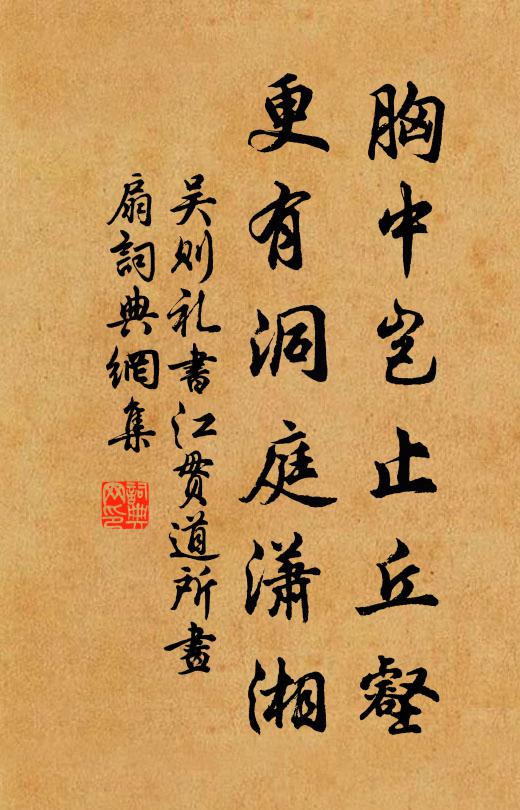 胸中岂止丘壑
更有洞庭潇湘
吴则礼書江贯道所畫
扇詞典網集
詞典网印